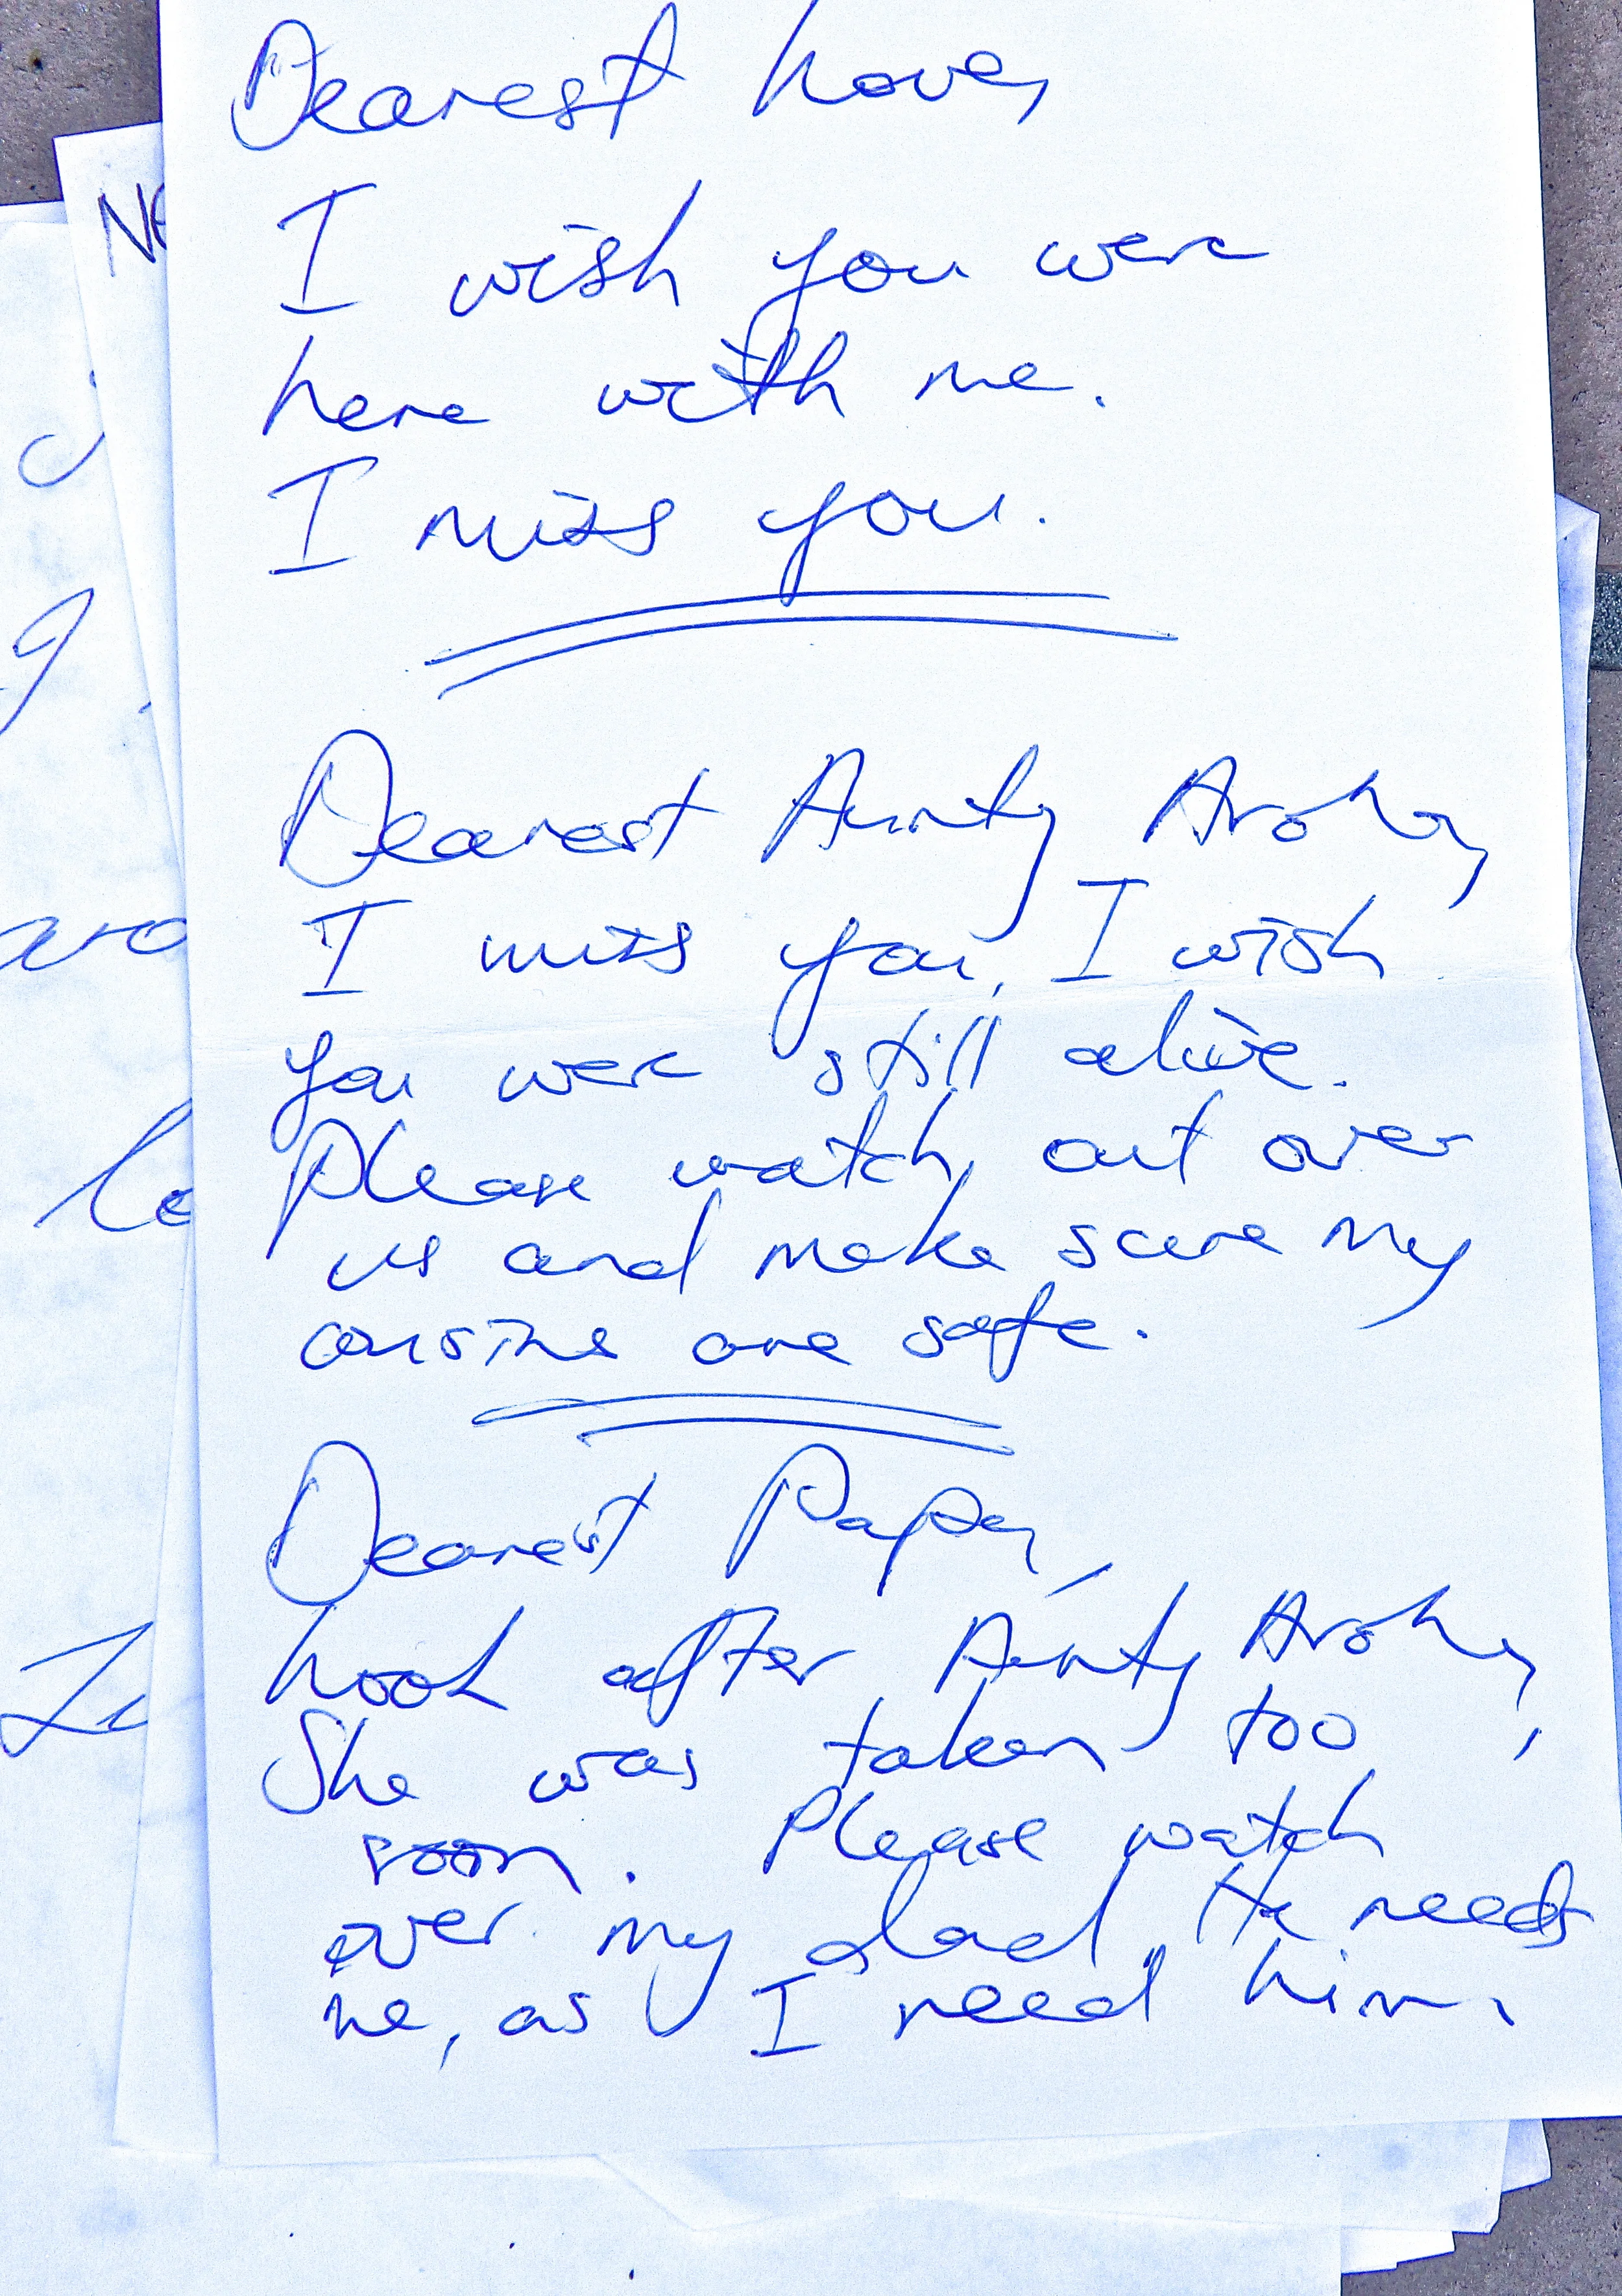 Dearest Love,
I wish you were
here with me.
I miss you.
Dearest Aunty Aroha,
I miss you, I wish
you were still alive.
Please watch out over
us and make sure my
cousins are safe.
Dearest Papa,
Look after Aunty Aroha,
She was taken too
soon. Please watch
over my dad. He needs
me, as I need him.